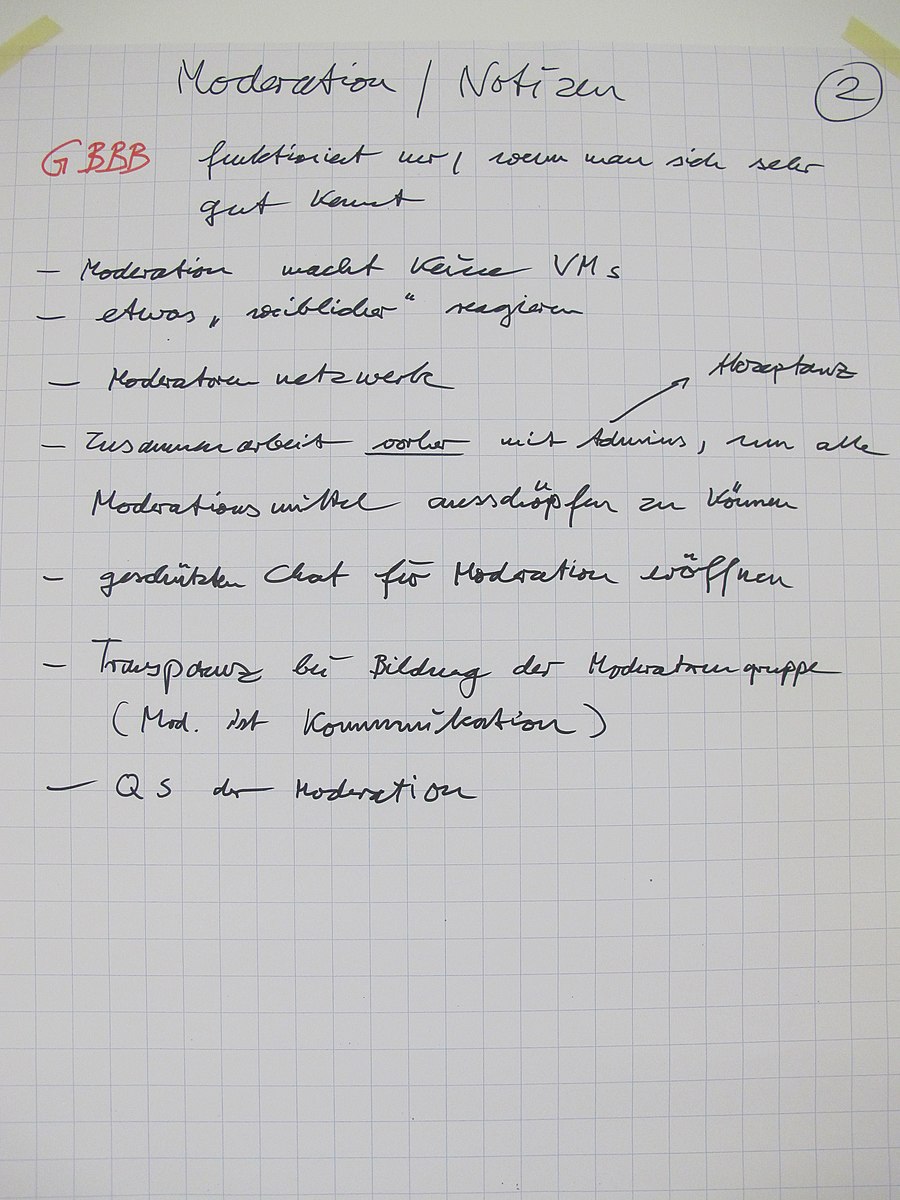 Moderation / Notizen
2
GBBB funktioniert nur, wenn man sich sehr
gut kennt
– Moderation macht keine VMs
– etwas „weiblicher“ reagieren
– Moderatorennetzwerk
Akzeptanz
– Zusammenarbeit vorher mit Admins, um alle
Moderationsmittel ausschöpfen zu können
– geschützten Chat für Moderation eröffnen
– Transparenz bei Bildung der Moderatorengruppe
(Mod. ist Kommunikation)
– QS der Moderation